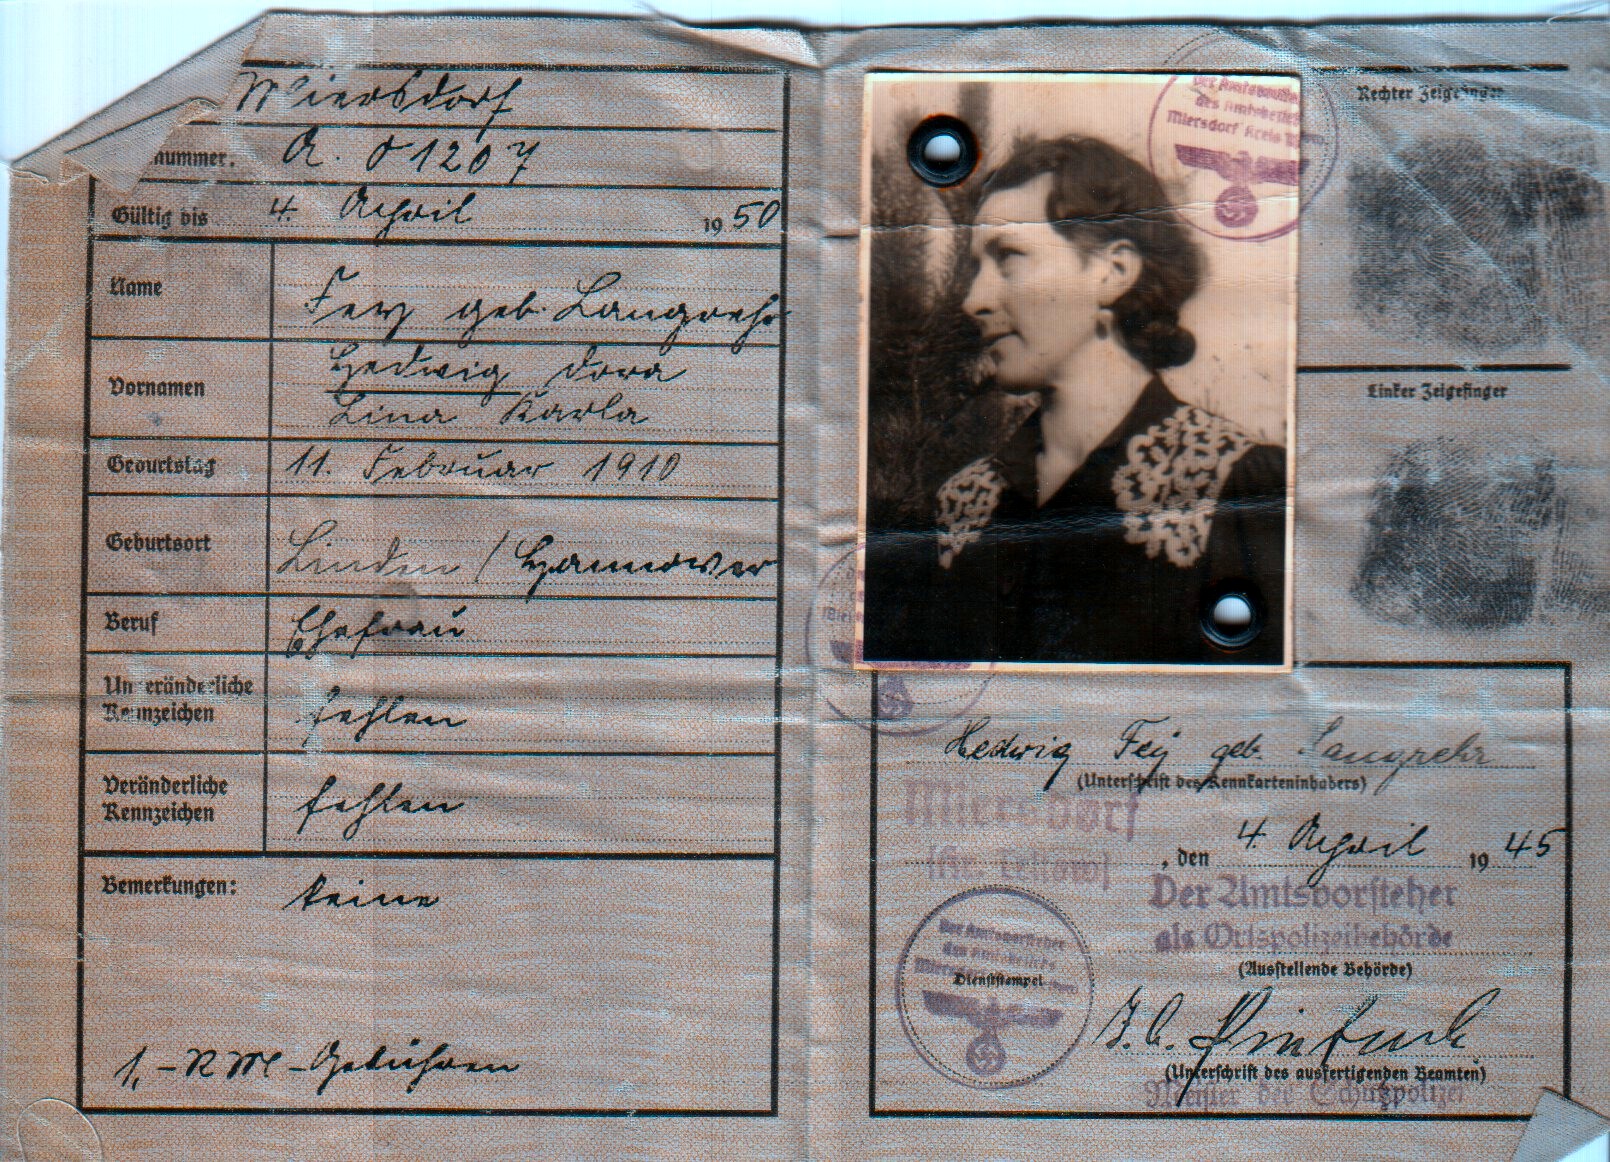 Miersdorf
nummer. A. 01207
Gültig bis 4. April 1950
Name Fey geb. Langrehr
Vornamen Hedwig Dora
Lina Karla
Geburtstag 11. Februar 1910
Geburtsort Linden / Hannover
Beruf Ehefrau
Unveränderliche
Kennzeichen fehlen
Veränderliche
Kennzeichen fehlen
Bemerkungen: keine
1,- RM - Gebühren
Der Amtsvorsteher
des Amtsbezirks
Miersdorf Kreis
Rechter Zeigefinger
Linker Zeigefinger
Hedwig Fey geb. Langrehr
(Unterschrift des Kennkarteninhabers)
Miersdorf
(Kr. Teltow)
, den 4. April 1945
Der Amtsvorsteher
als Ortspolizeibehörde
(Ausstellende Behörde)
Der Amtsvorsteher
des Amtsbezirks
Miersdorf
Dienststempel
(Unterschrift des ausfertigenden Beamten)
Meister der Schutzpolizei